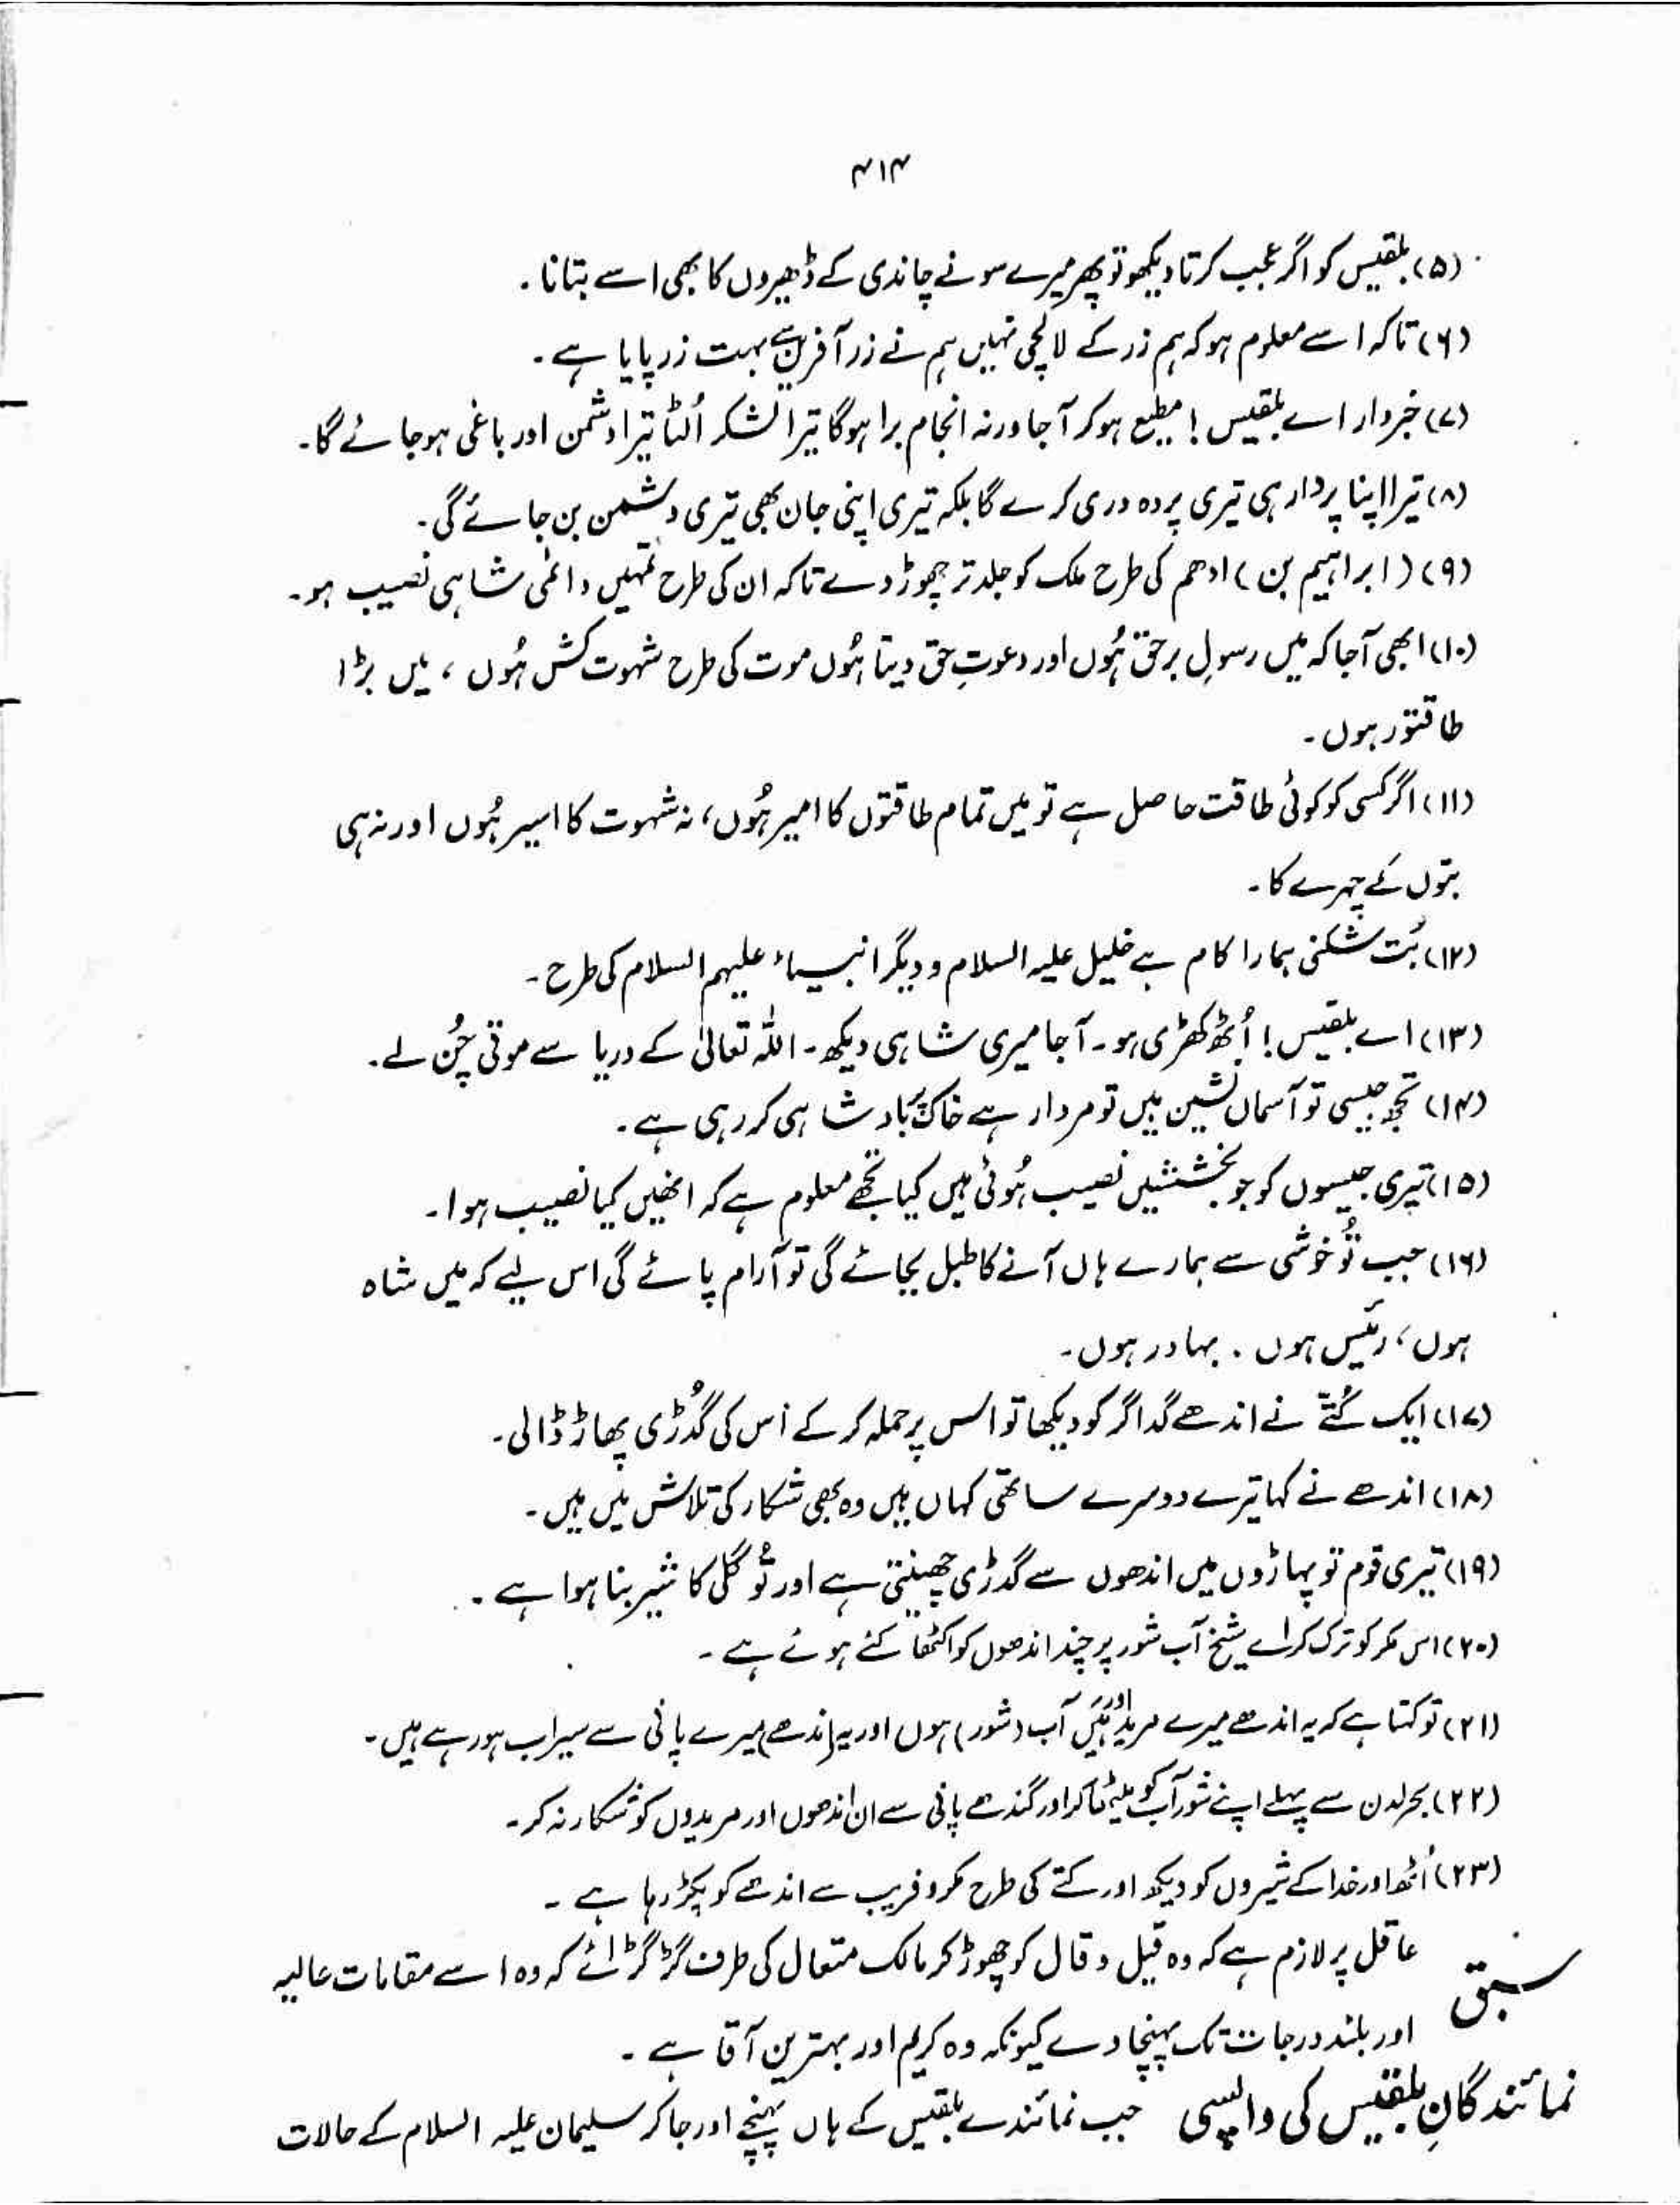 ۴۱۴
(۵) بلقیس کو اگر عجب کرتا دیکھو تو پھر میرے سونے چاندی کے ڈھیروں کا بھی اسے بتانا۔
(۶) تاکہ اسے معلوم ہو کہ ہم زر کے لالچی نہیں ہم نے زر آفریں سے بہت زر پایا ہے۔
(۷) خبردار اے بلقیس! مطیع ہو کر آجا ورنہ انجام برا ہوگا تیرا لشکر اُلٹا تیرا دشمن اور باغی ہو جائے گا۔
(۸) تیرا اپنا پردار ہی تیری پردہ دری کرے گا بلکہ تیری اپنی جان بھی تیری دشمن بن جائے گی۔
(۹) (ابراہیم بن) ادھم کی طرح ملک کو جلد تر چھوڑ دے تاکہ ان کی طرح تمہیں دائمی شاہی نصیب ہو۔
(۱۰) ابھی آجا کہ میں رسولِ برحق ہُوں اور دعوتِ حق دیتا ہُوں موت کی طرح شہوت کش ہُوں ، میں بڑا
طاقتور ہوں۔
(۱۱) اگر کسی کو کوئی طاقت حاصل ہے تو میں تمام طاقتوں کا امیر ہُوں، نہ شہوت کا اسیر ہُوں اور نہ ہی
بتوں کے چہرے کا۔
(۱۲) بُت شکنی ہمارا کام ہے خلیل علیہ السلام و دیگر انبیاء علیہم السلام کی طرح۔
(۱۳) اے بلقیس! اُٹھ کھڑی ہو۔ آجا میری شاہی دیکھ۔ اللہ تعالیٰ کے دریا سے موتی چُن لے۔
(۱۴) تجھ جیسی تو آسماں نشین ہیں تو مردار ہے خاک پر بادشاہی کر رہی ہے۔
(۱۵) تیری جیسوں کو جو بخششیں نصیب ہُوئی ہیں کیا تجھے معلوم ہے کہ انھیں کیا نصیب ہوا۔
(۱۶) جب تُو خوشی سے ہمارے ہاں آنے کا طبل بجائے گی تو آرام پائے گی اس لیے کہ میں شاہ
ہوں، رئیس ہوں ۔ بہادر ہوں۔
(۱۷) ایک کُتّے نے اندھے گداگر کو دیکھا تو اس پر حملہ کر کے اُس کی گُدڑی پھاڑ ڈالی۔
(۱۸) اندھے نے کہا تیرے دوسرے ساتھی کہاں ہیں وہ بھی شکار کی تلاش میں ہیں۔
(۱۹) تیری قوم تو پہاڑوں میں اندھوں سے گدڑی چھینتی ہے اور تُو گلی کا شیر بنا ہوا ہے۔
(۲۰) اس مکر کو ترک کر اے شیخ آب شور پر چند اندھوں کو اکٹھا کئے ہوئے ہے۔
(۲۱) تو کہتا ہے کہ یہ اندھے میرے مرید اور میں آب (شور) ہوں اور یہ (اندھے) میرے پانی سے سیراب ہو رہے ہیں۔
(۲۲) بحر لدن سے پہلے اپنے شور آب کو میٹھا کر اور گندے پانی سے ان اندھوں اور مریدوں کو شکار نہ کر۔
(۲۳) اُٹھ اور خدا کے شیروں کو دیکھ اور کتے کی طرح مکر و فریب سے اندھے کو پکڑ رہا ہے۔
سبق عاقل پر لازم ہے کہ وہ قیل و قال کو چھوڑ کر مالک متعال کی طرف گڑگڑائے کہ وہ اسے مقامات عالیہ
اور بلند درجات تک پہنچا دے کیونکہ وہ کریم اور بہترین آقا ہے۔
نمائندگانِ بلقیس کی واپسی جب نمائندے بلقیس کے ہاں پہنچے اور جا کر سلیمان علیہ السلام کے حالات